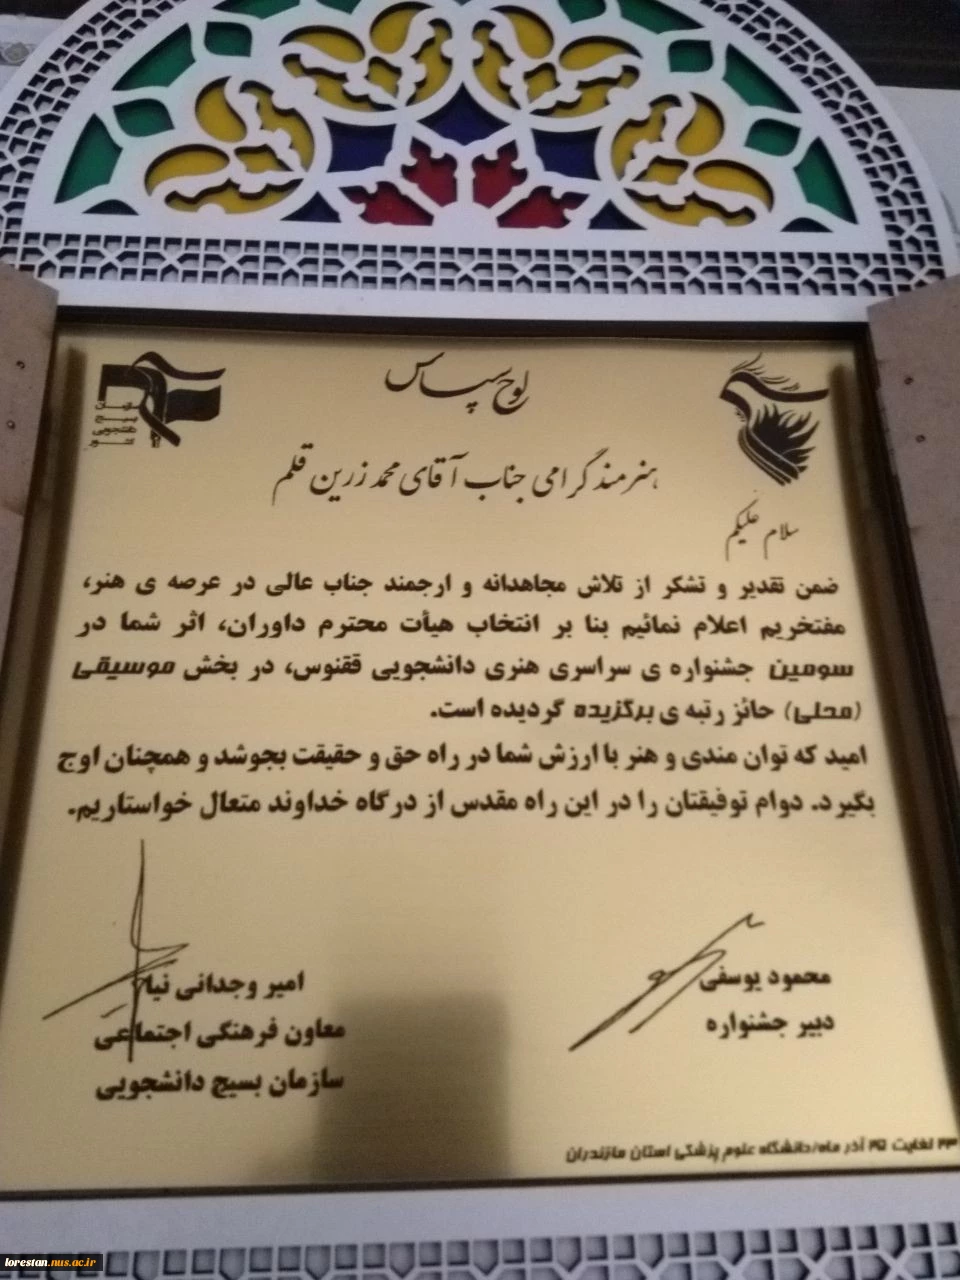 لوح سپاس
سازمان
بسیج
دانشجویی
کشور
هنرمند گرامی جناب آقای محمد زرین قلم
سلام علیکم
ضمن تقدیر و تشکر از تلاش مجاهدانه و ارجمند جناب عالی در عرصه ی هنر،
مفتخریم اعلام نمائیم بنا بر انتخاب هیأت محترم داوران، اثر شما در
سومین جشنواره ی سراسری هنری دانشجویی ققنوس، در بخش موسیقی
(محلی) حائز رتبه ی برگزیده گردیده است.
امید که توان مندی و هنر با ارزش شما در راه حق و حقیقت بجوشد و همچنان اوج
بگیرد. دوام توفیقتان را در این راه مقدس از درگاه خداوند متعال خواستاریم.
محمود یوسفی
دبیر جشنواره
امیر وجدانی نیا
معاون فرهنگی اجتماعی
سازمان بسیج دانشجویی
۲۳ لغایت ۲۵ آذر ماه/دانشگاه علوم پزشکی استان مازندران
lorestan.nus.ac.ir